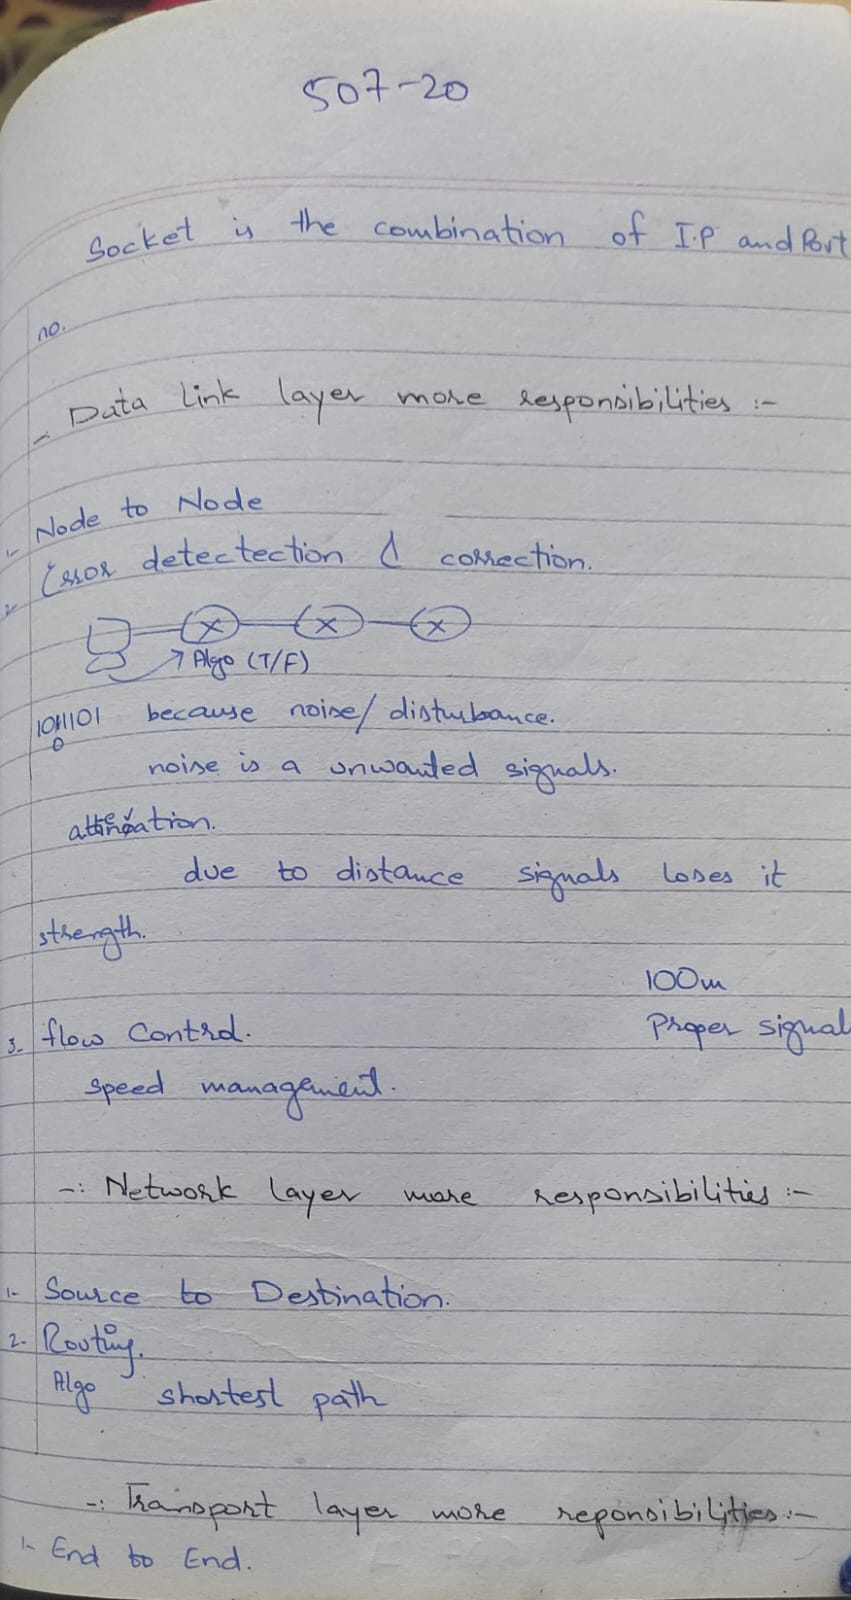 507-20
Socket is the combination of I.P and Port
no.
- Data Link layer more responsibilities :-
1- Node to Node
2- Error detectection & correction.
Algo (T/F)
1011101 because noise/ disturbance.
0
noise is a unwanted signals.
attenuation.
due to distance signals loses it
strength.
100m
3- flow Control. Proper signal
speed management.
-: Network layer more responsibilities :-
1- Source to Destination.
2- Routing.
Algo shortest path
-: Transport layer more reponsibilities :-
1- End to End.